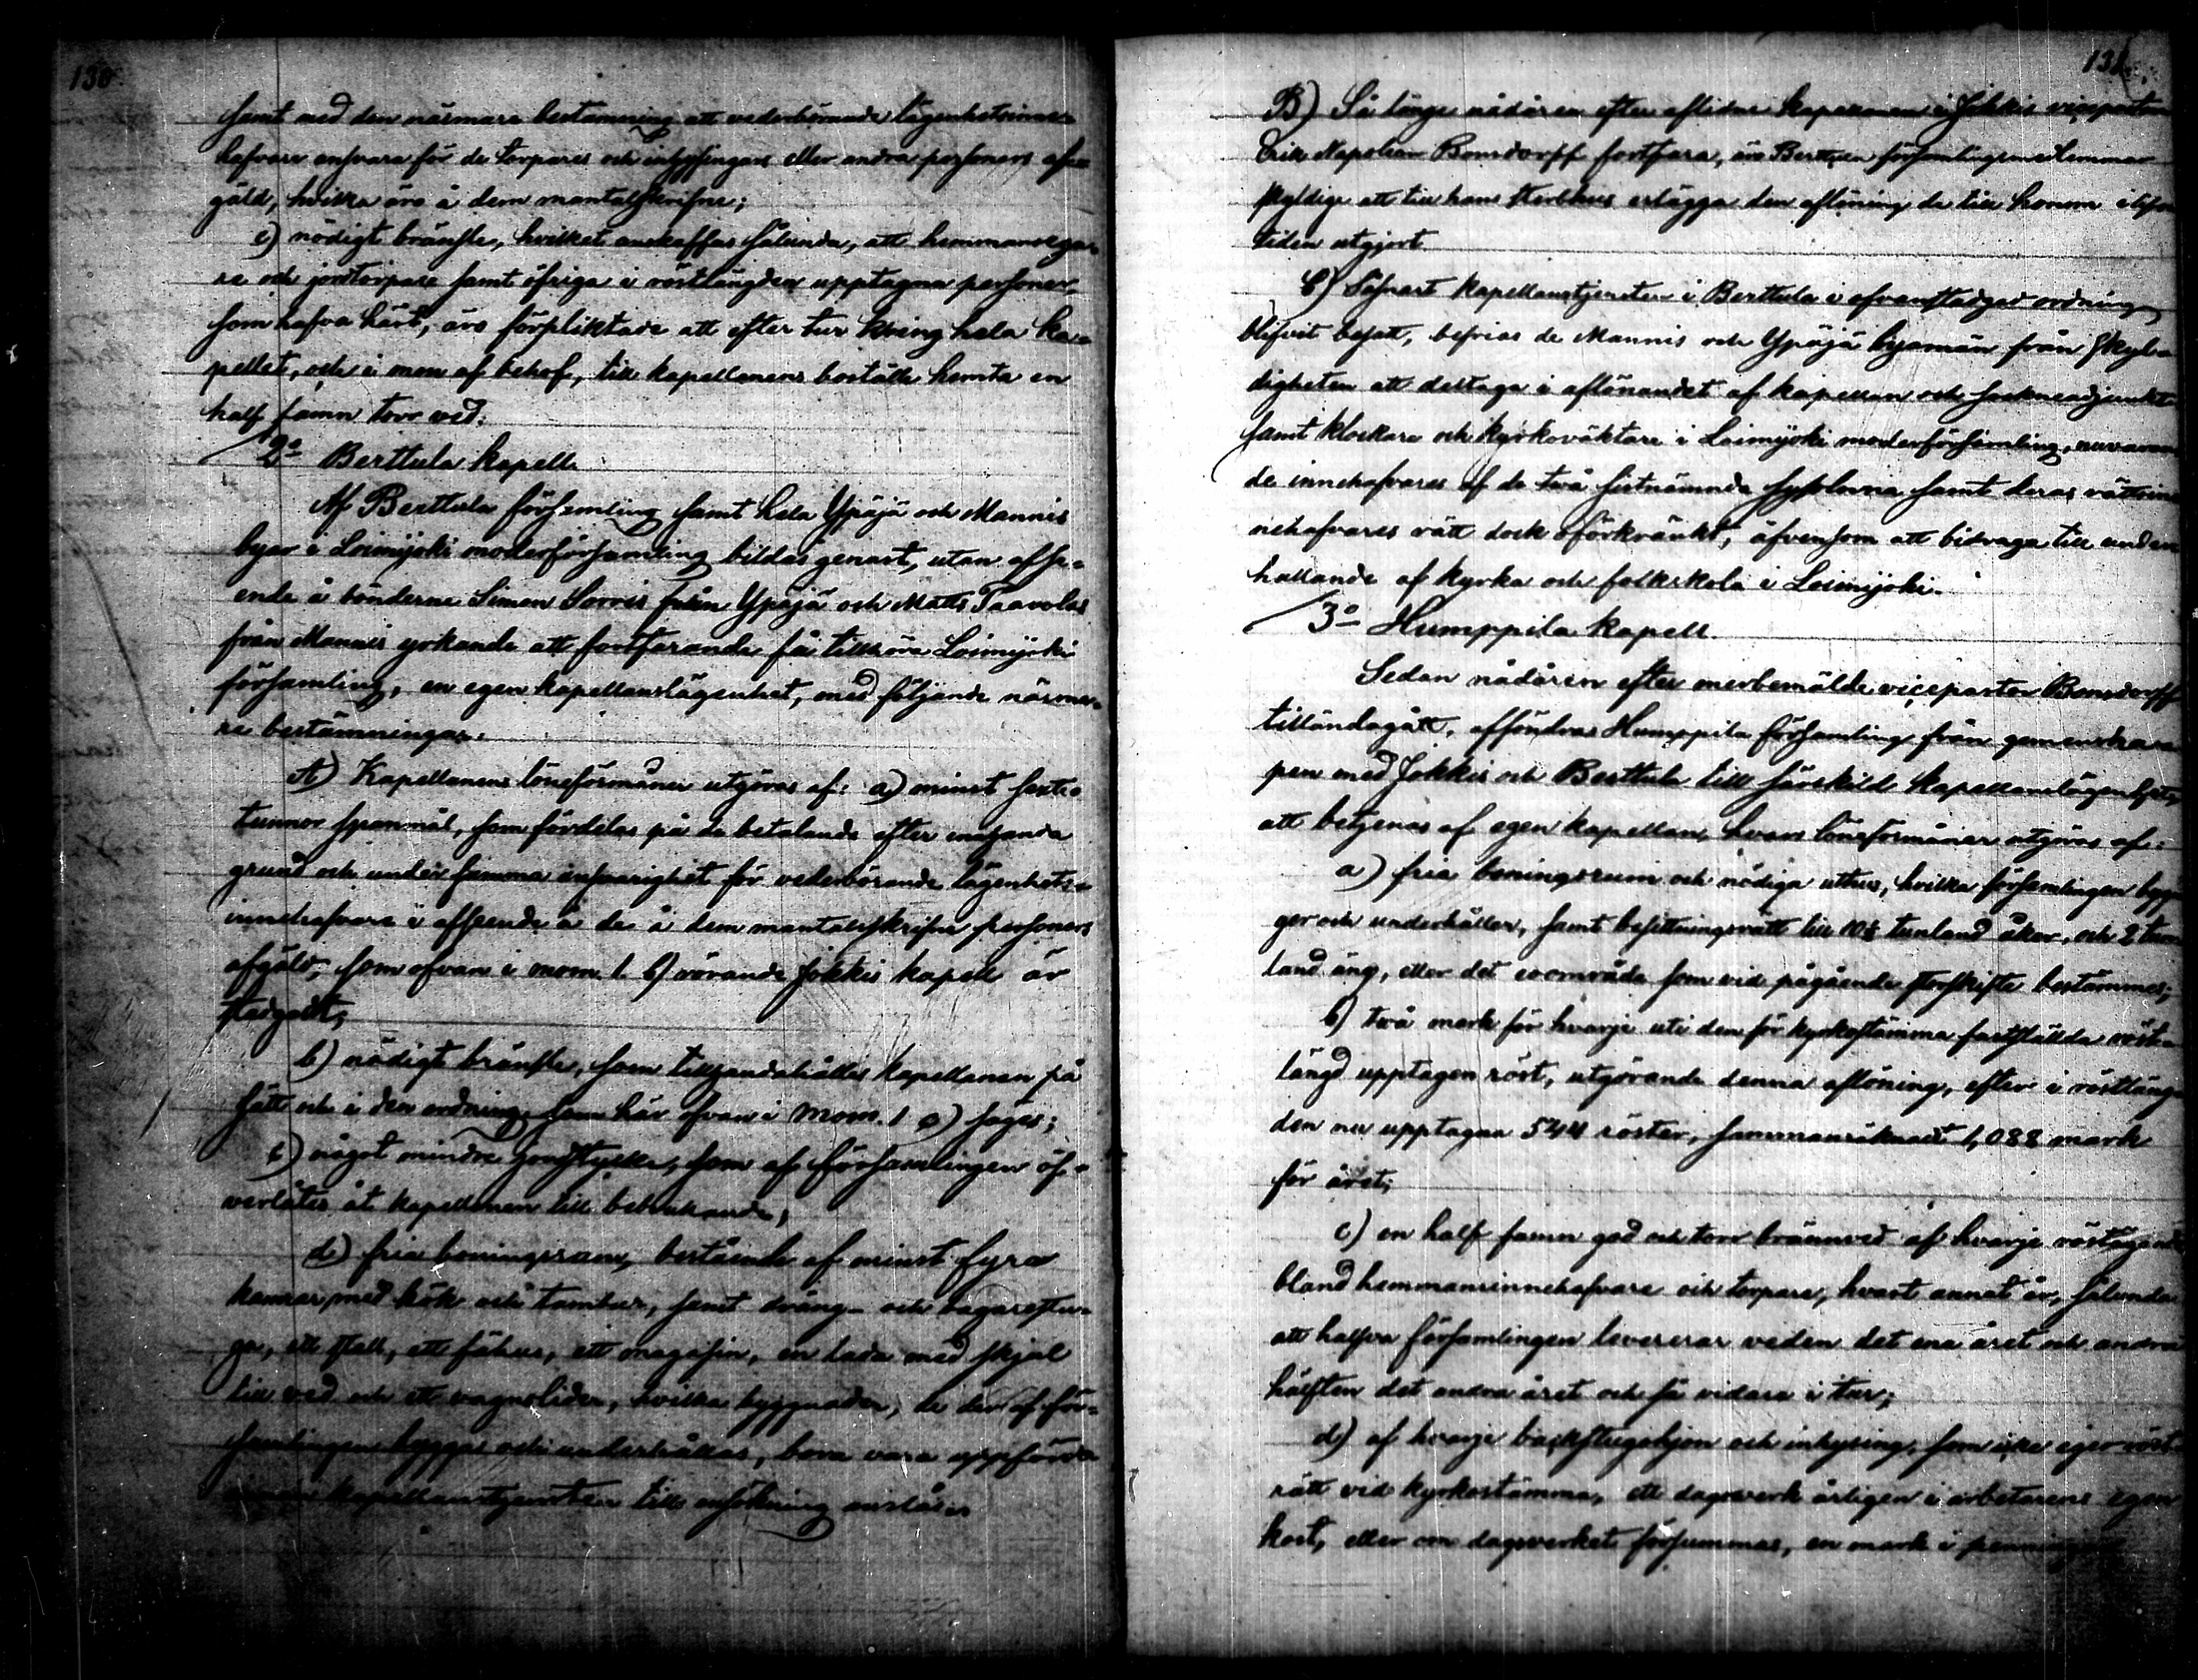 130
samt med den närmare bestämning att vederbörande lägenhetsinne-
hafvare ansvara för de torpares och inhysingars eller andra personers af-
gäld, hvilka äro å dem mantalsskrifne;
e) nödigt bränsle, hvilket anskaffas sålunda, att hemmansega-
re och jordtorpare samt öfriga i röstlängden upptagna personer
som hafva häst, äro förpliktade att efter tur kring hela ka-
pellet, och i mon af behof, till kapellanens boställe hemta en
half famn torr ved.
2o Berttula kapell.
Af Berttula församling samt hela Ypäjä och Mannis
byar i Loimijoki moderförsamling bildas genast, utan afse-
ende å bönderne Simon Sorris från Ypäjä och Matts Taavolas
från Mannis yrkande att fortfarande få tillhöra Loimijoki
församling, en egen kapellanslägenhet, med följande närma-
re bestämningar.
A) Kapellanens löneförmåner utgöras af: a) minst sextio
tunnor spanmål, som fördelas på de betalande efter enahanda
grund och under samma ansvarighet för vederbörande lägenhets-
innehafvare i afseende å de å dem mantalsskrifne personers
afgäld, som ofvan i mom. 1. b) rörande Jokkis kapell är
stadgadt;
b) nödigt bränsle, som tillhandahålles kapellanen på
sätt och i den ordning som här ofvan i mom. 1 e) säges;
c) något mindre jordstycke, som af församlingen öf-
verlåtes åt kapellanen till bebrukande;
d) fria boningsrum, bestående af minst fyra
kamrar, med kök och tambur, samt dräng- och bagarestu-
ga, ett stall, ett fähus, ett magasin, en lada med skjul
till ved och ett vagnslider, hvilka byggnader, de der af för-
samlingen byggas och underhållas, böra vara uppförda
innan kapellanstjensten till ansökning anslås.
131
B) Så länge nådåren efter aflidne kapellanen i Jokkis vicepastorn
Erik Napoleon Bonsdorff fortfara, äro Berttula församlingsmedlemmar
skyldige att till hans sterbhus erlägga den aflöning de till honom i lifs-
tiden utgjort.
C) Såsnart kapellanstjensten i Berttula i ofvanstadgad ordning
blifvit besatt, befrias de Mannis och Ypäjä byamän från skyl-
digheten att deltaga i aflönandet af kapellan och sockneadjunkt
samt klockare och kyrkoväktare i Loimijoki moderförsamling, nuvaran
de innehafvares af de två sistnämnda sysslorna samt deras rättsin
nehafvares rätt dock oförkränkt, äfvensom att bidraga till under
hållande af kyrka och folkskola i Loimijoki.
3o Humppila kapell.
Sedan nådåren efter merbemälde vicepastor Bonsdorff
tilländagått, afsöndras Humppila församling från gemenska
pen med Jokkis och Berttula till särskild kapellanslägenhet,
att betjenas af egen kapellan, hvars löneförmåner utgöras af:
a) fria boningsrum och nödiga uthus, hvilka församlingen byg
ger och underhåller, samt besittningsrätt till 10½ tunland åker, och 2 tun
land äng, eller det område som vid pågående storskifte bestämmes;
b) två mark för hvarje uti den för kyrkostämma fastställda röst-
längd upptagen röst, utgörande denna aflöning, efter i röstläng
den nu upptagna 544 röster, sammanräknadt 1,088 mark
för året;
c) en half famn god och torr brännved af hvarje röstägande
bland hemmansinnehafvare och torpare, hvart annat år, sålunda
att halfva församlingen levererar veden det ena året och andra
hälften det andra året och så vidare i tur;
d) af hvarje backstugohjon och inhysing, som icke eger röst-
rätt vid kyrkostämma, ett dagsverk årligen i arbetarens egen
kost, eller om dagsverket försummas, en mark i penningar